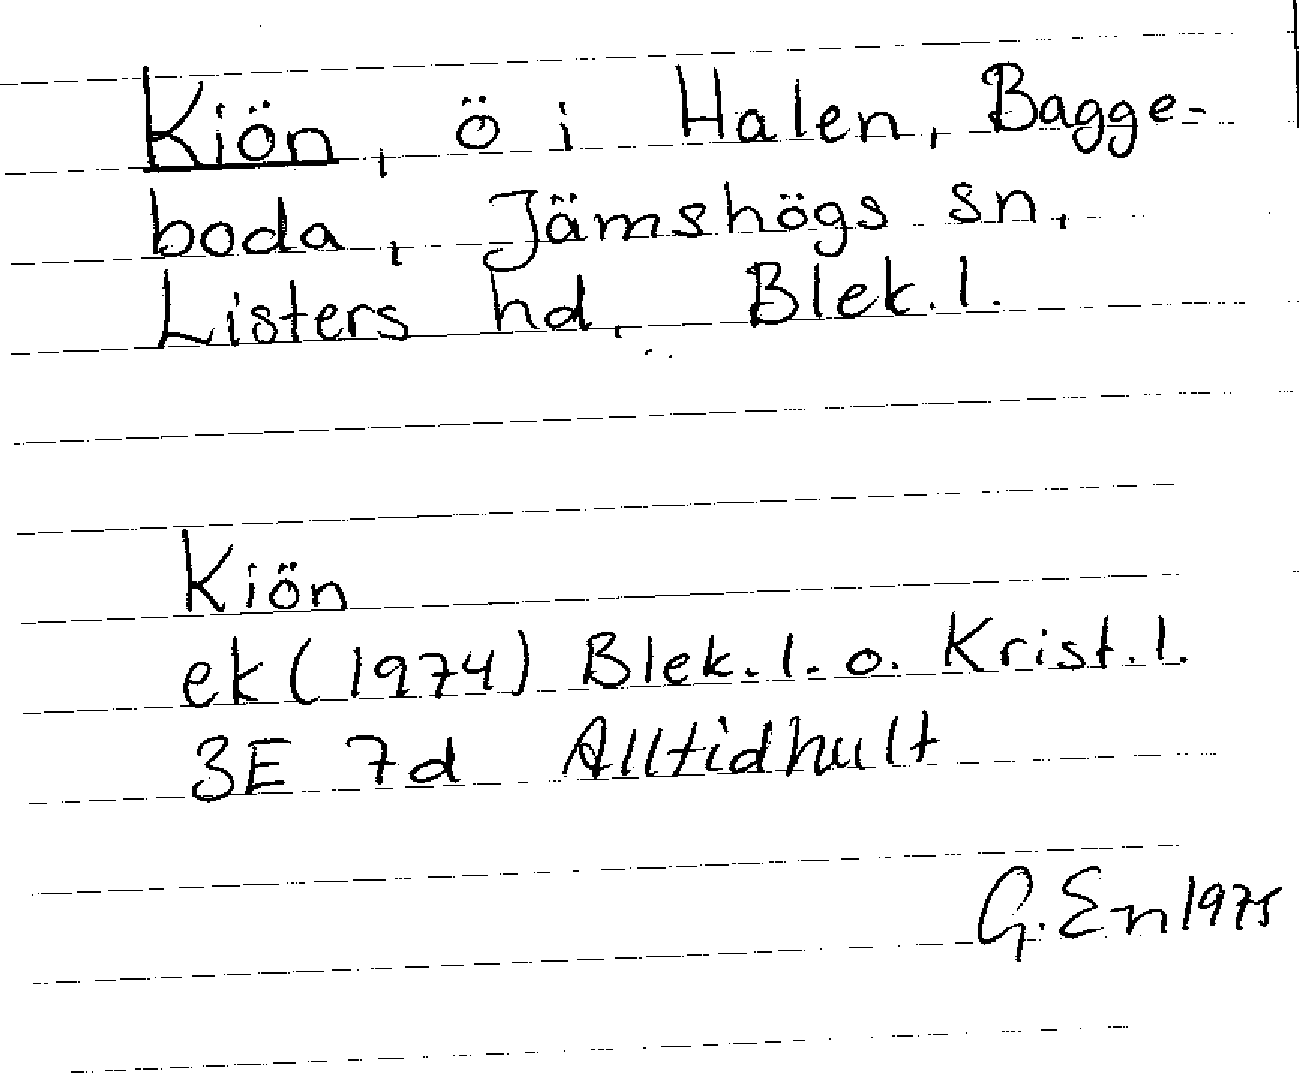 Kiön, ö i Halen, Bagge-
boda, Jämshögs sn,
Listers hd, Blek. l.
Kiön
ek (1974) Blek. l. o. Krist. l.
3E 7d Alltidhult
G. En 1975